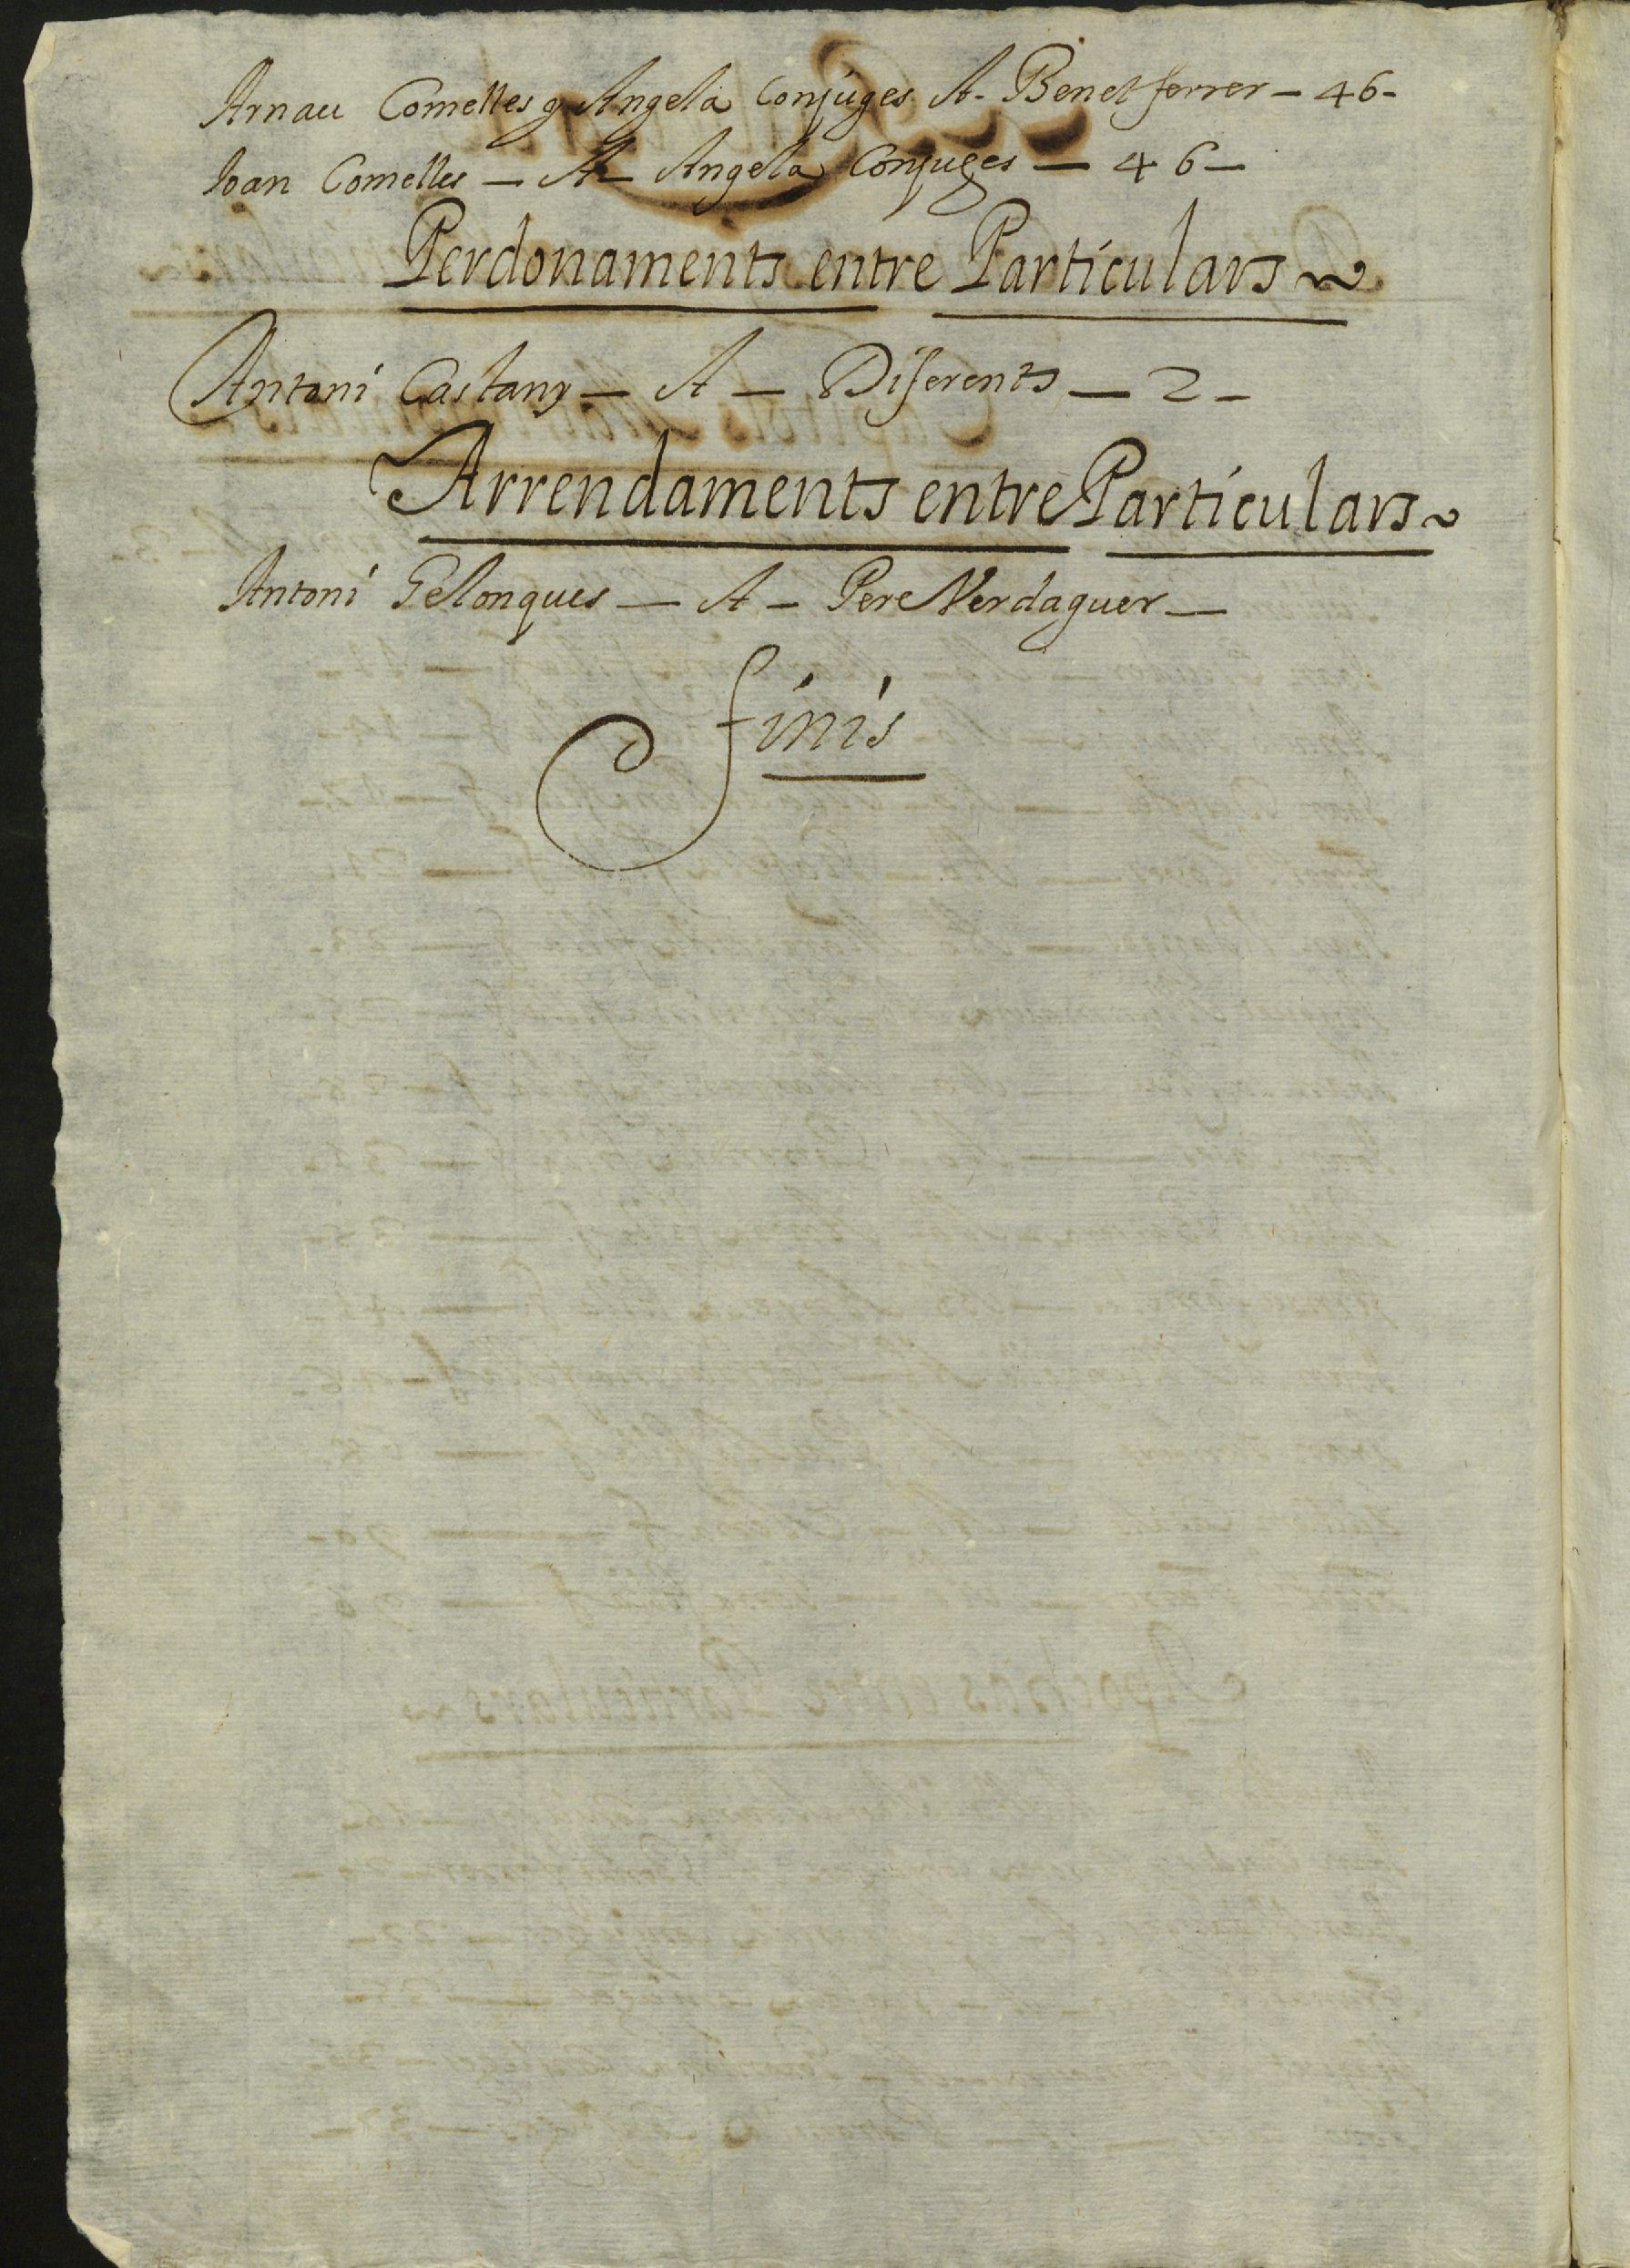 Arnau Comelles y Angela Conjuges A - Benet ferrer - 46 -
Joan Comelles - A - Angela Conjuges - 46 -
Perdonaments entre Particulars
Antoni Castany - A - Diferents - 2 -
Arrendaments entre Particulars
Antoni - A - Pere Verdaguer -
finis